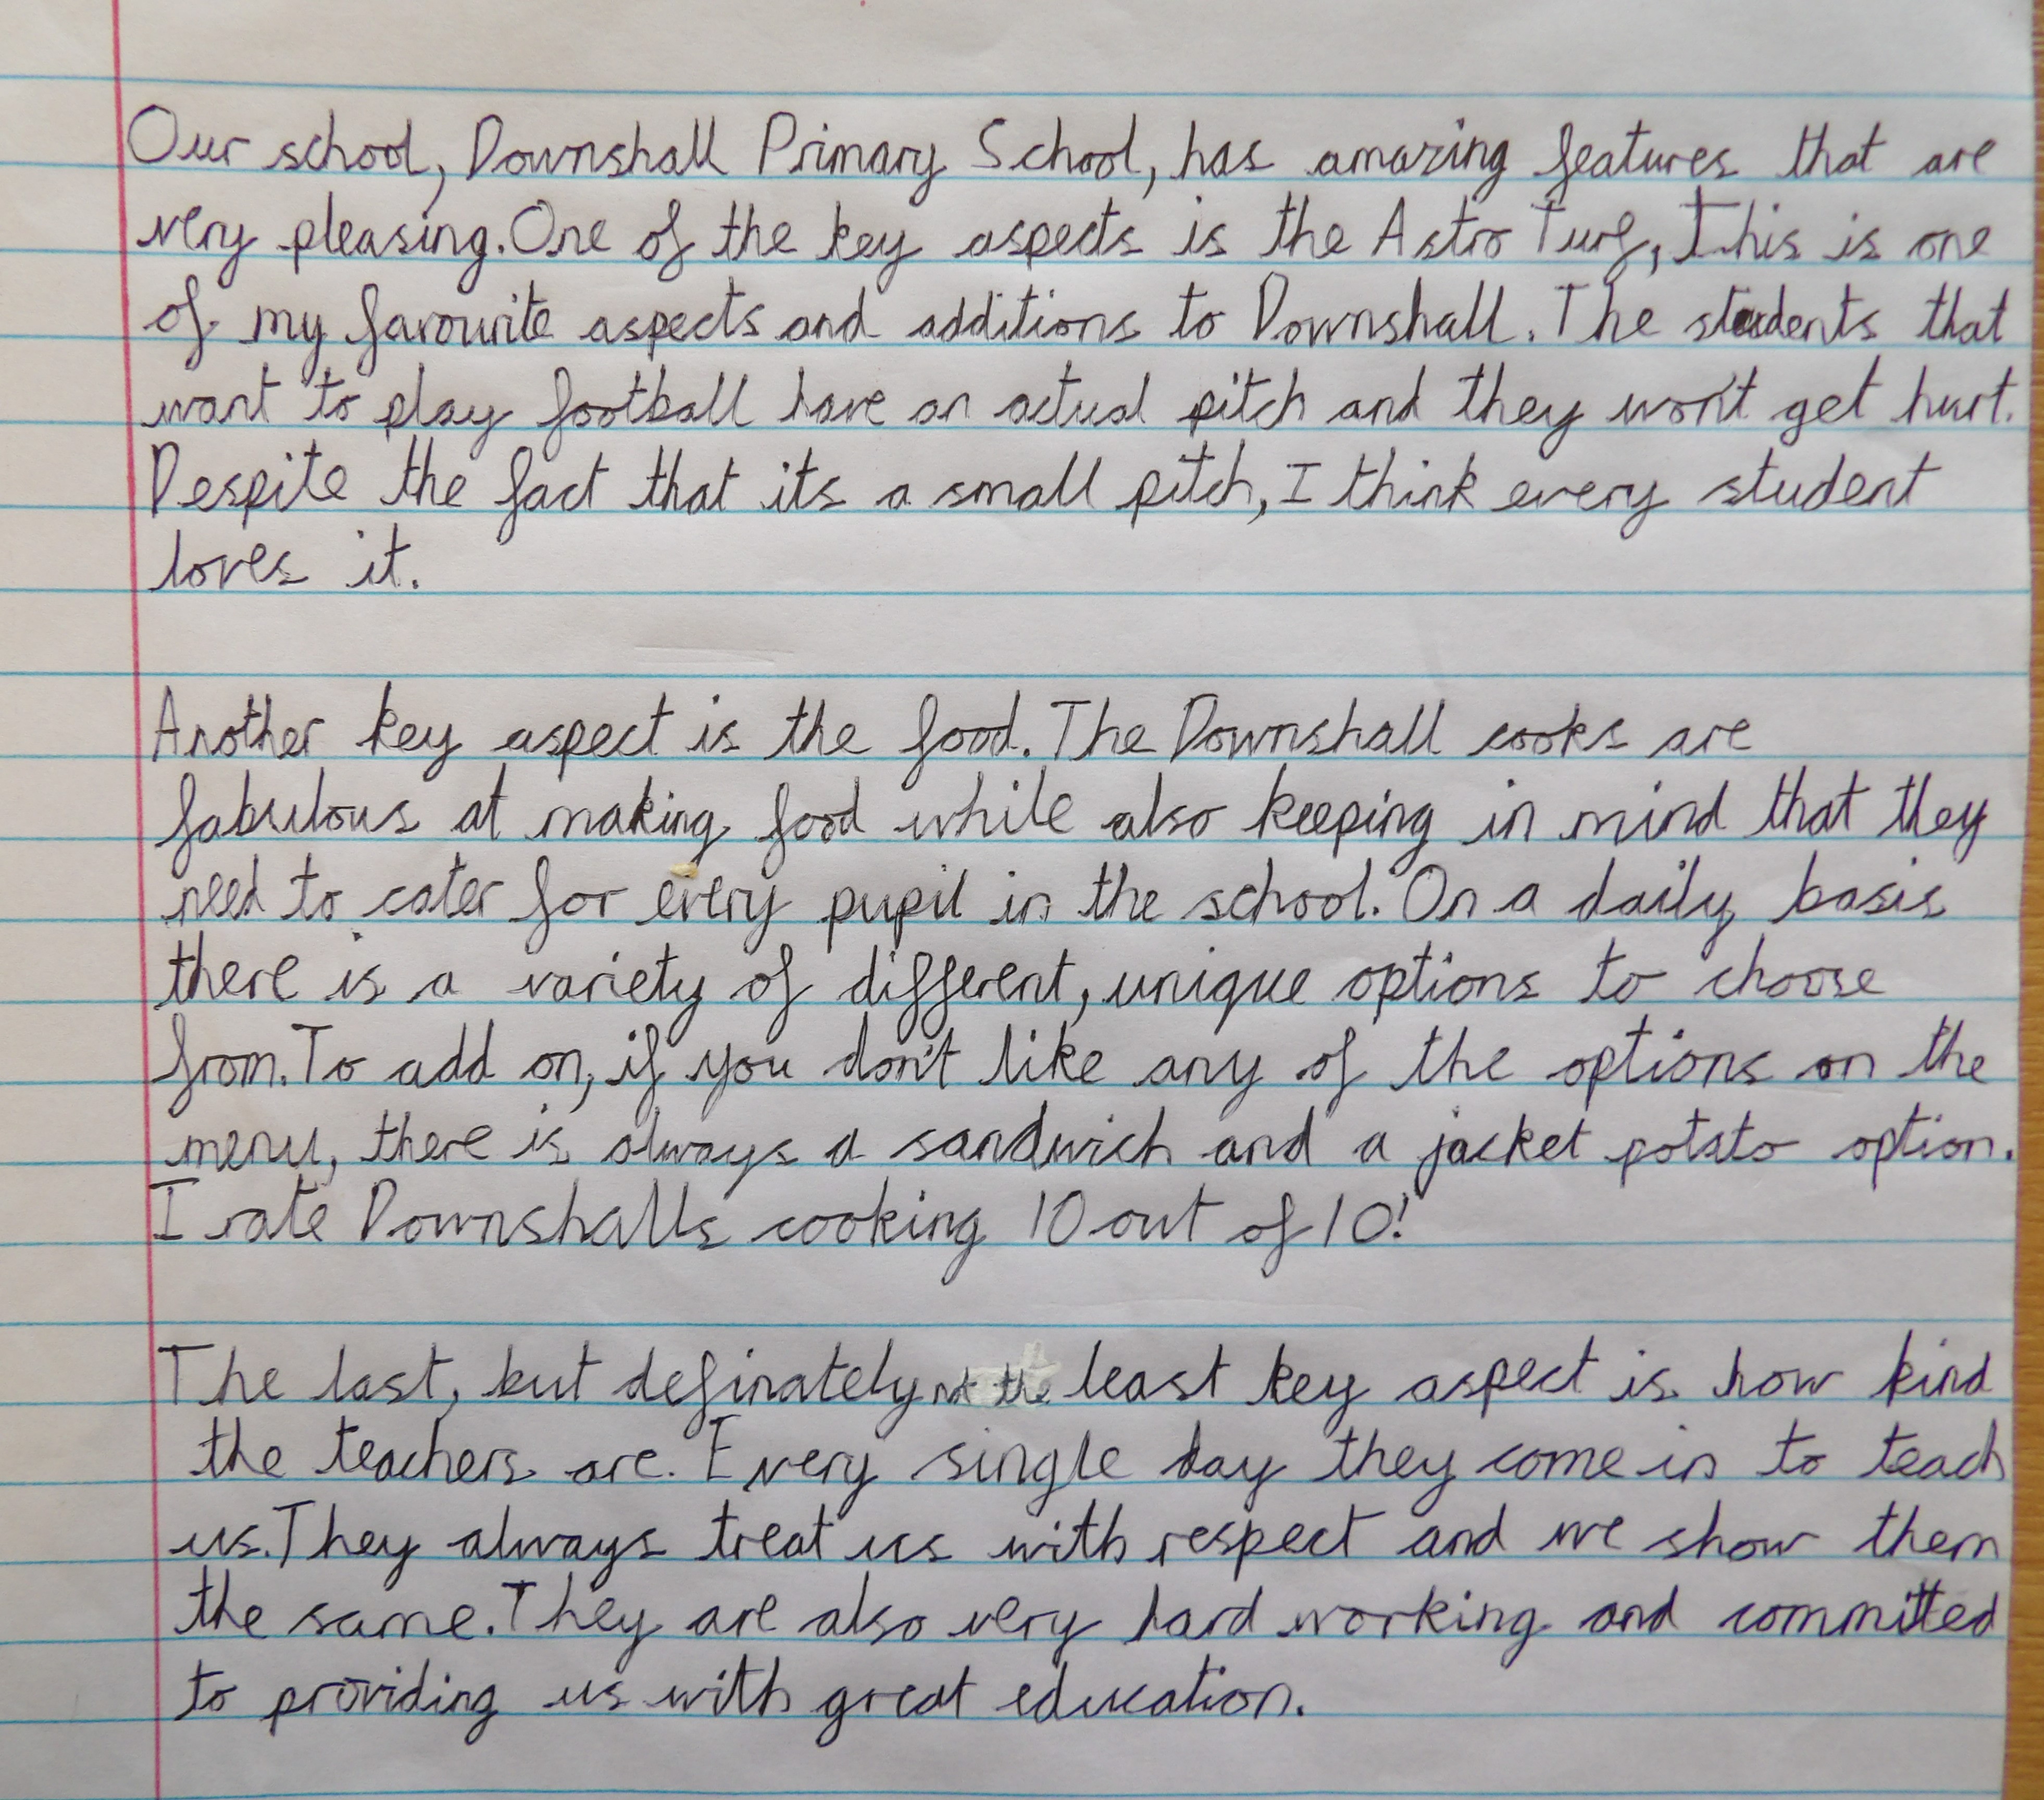 Our school, Downshall Primary School, has amazing features that are
very pleasing. One of the key aspects is the Astro Turf, This is one
of my favourite aspects and additions to Downshall. The students that
want to play football have an actual pitch and they won't get hurt.
Despite the fact that its a small pitch, I think every student
loves it.
Another key aspect is the food. The Downshall cooks are
fabulous at making food while also keeping in mind that they
need to cater for every pupil in the school. On a daily basis
there is a variety of different, unique options to choose
from. To add on, if you don't like any of the options on the
menu, there is always a sandwich and a jacket potato option.
I rate Downshalls cooking 10 out of 10!
The last, but definately not the least key aspect is how kind
the teachers are. Every single day they come in to teach
us. They always treat us with respect and we show them
the same. They are also very hard working and committed
to providing us with great education.